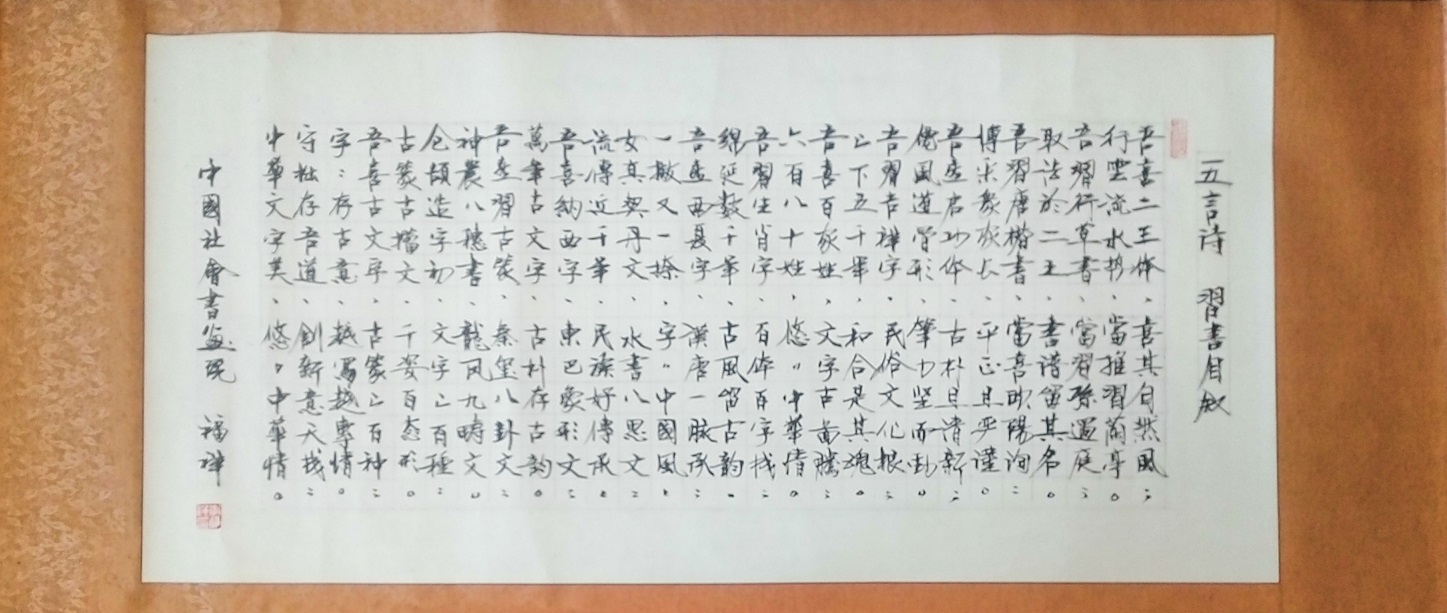 五言诗 習書自叙
吾喜二王体、喜其自然风；
行雲流水势、當推習蘭亭。
吾習行草書、當習孫過庭；
取法於二王、書谱留其名。
吾習唐楷書、當喜欧陽询；
博采衆家长、平正且严谨。
吾虚启功体、古朴且清新；
儍風道骨形、筆力坚而劲。
吾習吉祥字、民俗文化根；
上下五千年、和合是其魂。
吾喜百家姓、文字古當腾；
六百八十姓、悠〃中華情。
吾習生肖字、百体百字找；
绵延数千年、古風留古韵。
吾虚西夏字、漢唐一脉承；
一撇又一捺、字〃中國風。
女真契丹文、水書八思文；
流傳近千年、民族好传承。
吾喜納西字、東巴象形文；
萬年古文字、古朴存古韵。
吾虚習古篆、秦玺八卦文；
神農八穗書、龍凤九畴文。
仓颉造字初、文字二百種；
古篆古檔文、千姿百态形。
吾喜古文字、古篆二百种；
字〃存古意、越寫越專情。
守拙存吾道、創新意天找；
中華文字美、悠〃中華情。
中國社會書畫院 福祥